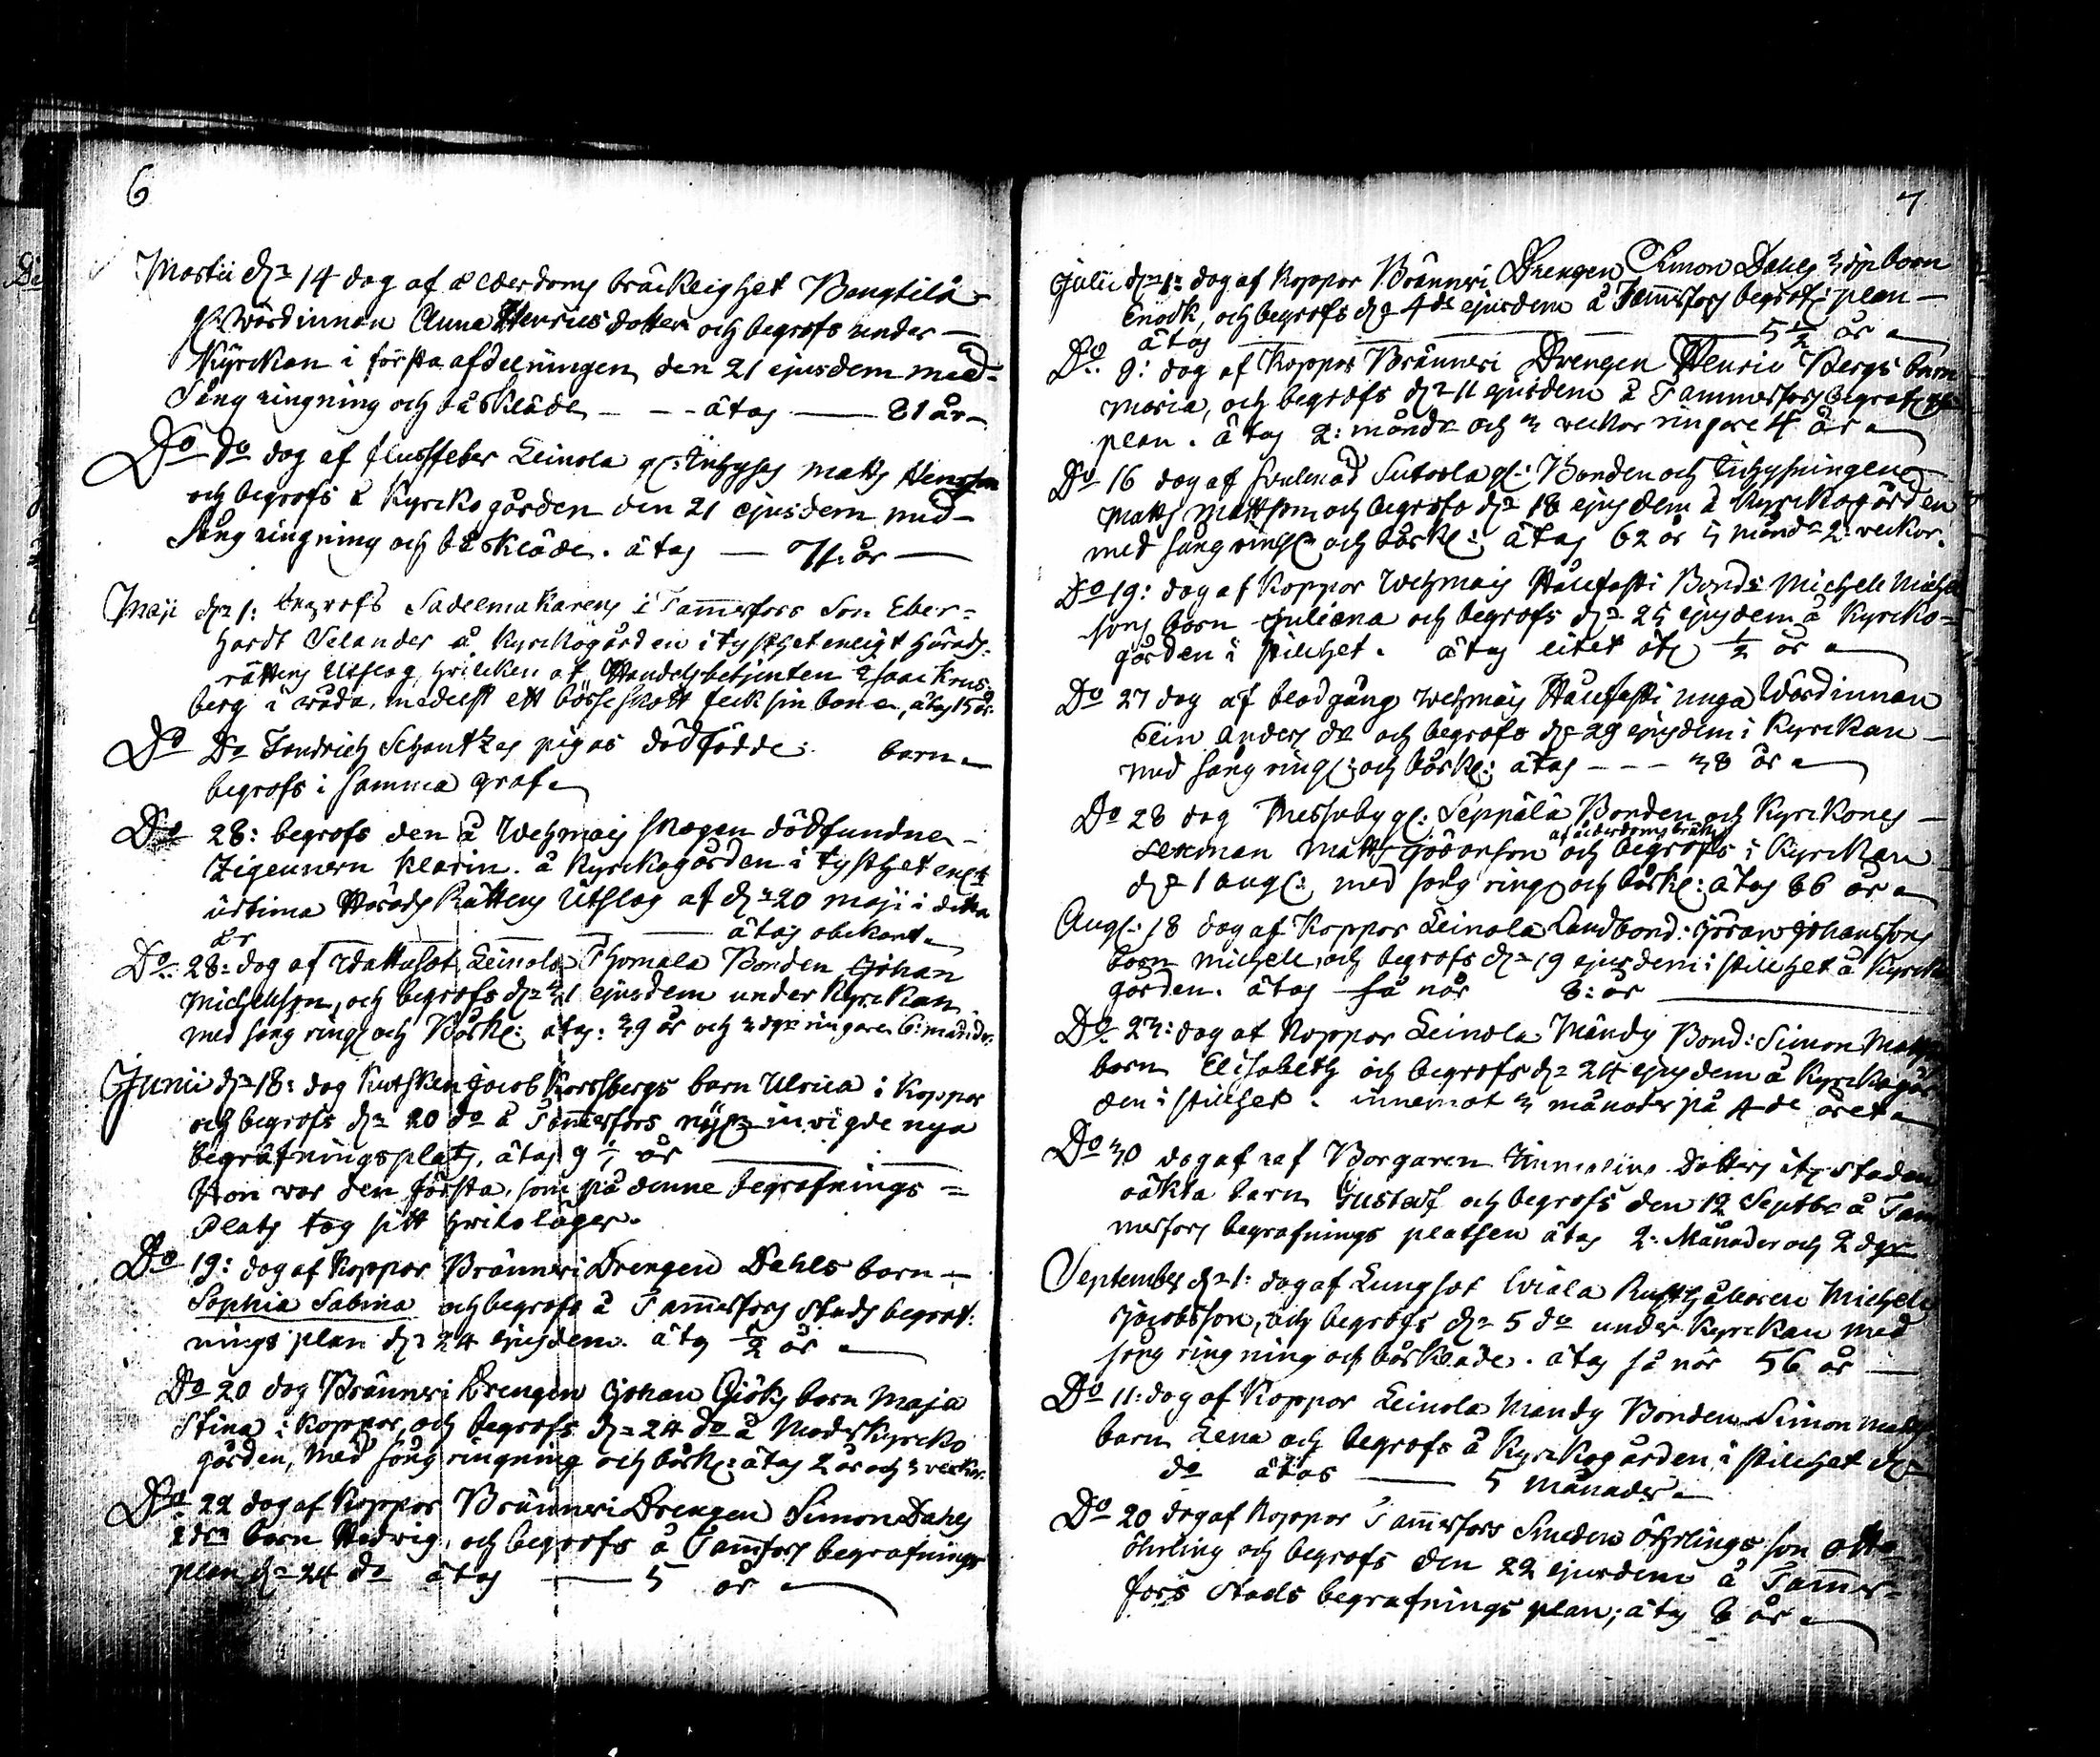 6
Martii d. 14 dag af ålderdoms bräcklighet Bengtilä
Wärdinnan Anna Henricsdotter och begrofs under
Kyrckan i första afdelningen den 21 ejusdem med
Sång ringning och båskläde - - - ätas — 81 år
Do Do dag af flussfeber Leinola gl: Inhyses Matts Hensson
och begrofs å Kyrckogården den 21 ejusdem med
Sång ringning och båskläde. ätas — 71. år —
Maji d. 1: begrofs Sadelmakarens i Tammerfors Son Eber=
hardt Selander å Kyrckogården i tysthet enligt Härads
rättens Utslag, hvilcken af Handelsbetjenten Isaac Krus
berg i våda medelst ett bösseskott feck sin bane, ätas 15 år
Do Do Fendrich Schantzes pigas dödfödde barn
begrofs i samma graf
Do 28: begrofs den å Wehmais skogen dödfundne
Zigeunern Klarin å Kyrckogården i tysthet enl:t
urtima Härads Rättens Utslag af d. 20 Maji i detta
år — ätas obekant
Do 28: dag af Wattusot Leinola Thomala Bonden Johan
Michelsson, och begrofs d. 31 ejusdem under Kyrckan
med sång ring: och Båskl: ätas: 39 år och 3 dgr ringare 6: månader
Junii d. 18: dag Kusken Jacob Korssbergs barn Ulrica i Koppor
och begrofs d. 20 do å Tammerfors nyl: invigde nya
begrafningsplats, ätas 9 ½ år
Hon war den första, som på denne begrafnings=
Plats tog sitt hvilolager.
Do 19: dag af Koppor Bränneri Drengen Dahls barn
Sophia Sabina och begrofs å Tammerfors Stads begraf:
nings plan d. 24 ejusdem. ätas ½ år
Do 20 dag Bränneri Drengen Johan Giöks barn Maja
Stina i Koppor, och begrofs d. 24 do å Moderkyrcko
gården, med sång ringning och båskl: ätas 2 år och 3 veckor
Do 22 dag af Koppor Bränneri Drengen Simon Dahls
2dra barn Hedvig, och begrofs å Tammfors begrafnings
plan d. 24 do ätas — 5 år
7
Julii d. 1: dag af Koppor Bränneri Drengen Simon Dahls 3dje barn
Enock, och begrofs d. 4de ejusdem å Tammerfors begrafn: plan —
ätas — 5 ½ år
Do 9: dag af Koppor Bränneri Drengen Henric Bergs barn
Maria, och begrofs d. 11 ejusdem å Tammerfors begrafn:
plan. ätas 2: månader och 3 veckor ringare 4 år
Do 16 dag af Svulnad Sutoola gl: Bonden och Inhysningen
Matts Mattsson och begrofs d. 18 ejusdem å Kyrckogården
med sång ring: och båskl: ätas 62 år 5 månd: 2: veckor.
Do 19: dag af Koppor Wehmais Hauchasti Bonds Michels Michels
sons barn Juliana och begrofs d. 25 ejusdem å Kyrcko=
gården i stillhet. ätas litet öfver ½ år
Do 27 dag af blodgång Wehmais Hauchasti unga Wärdinnan
Lein Anders dr och begrofs d. 29 ejusdem i Kyrckan
med sång ring: och båskl: ätas - - - 38 år
Do 28 dag Messuby gl: Seppälä Bonden och Kyrckones
sexman Matts Göransson af ålderdoms bräckl: och begrofs i Kyrckan
d. 1 Aug: med sång ring: och båskl: ätas 66 år
Aug: 18 dag af Koppor Leinola Landbond: Göran Johanssons
barn Michel, och begrofs d. 19 ejusdem i stillhet å Kyrcko
gården. ätas så när 8: år
Do 23: dag af Koppor Leinola Mändy Bond: Simon Matts
barn Elisabeth och begrofs d. 24 ejusdem å Kyrckogår
den i stillhet. innemot 3 månader på 4de året
Do 30 dag af Borgaren dotters staden
oäkta barn Gustaf och begrofs den 12 Septbr å Tam
merfors begrafnings platsen ätas 2: Månader och 2 dgr
September d. 1: dag af Lungsot Wiala Rusthållaren Michel
Jacobsson, och begrofs d. 5 do under Kyrckan med
sång ringning och båskläde. ätas så när 56 år —
Do 11: dag af Koppor Leinola Mändy Bonden Simon Matts
barn Lena och begrofs å Kyrckogården i stillhet d.
do ätas — 5 Månader
Do 20 dag af Koppor Tammerfors Smeden Öhrlings son Otto
Öhrling och begrofs den 22 ejusdem å Tammer=
fors Stads begrafnings plan; ätas 8 år